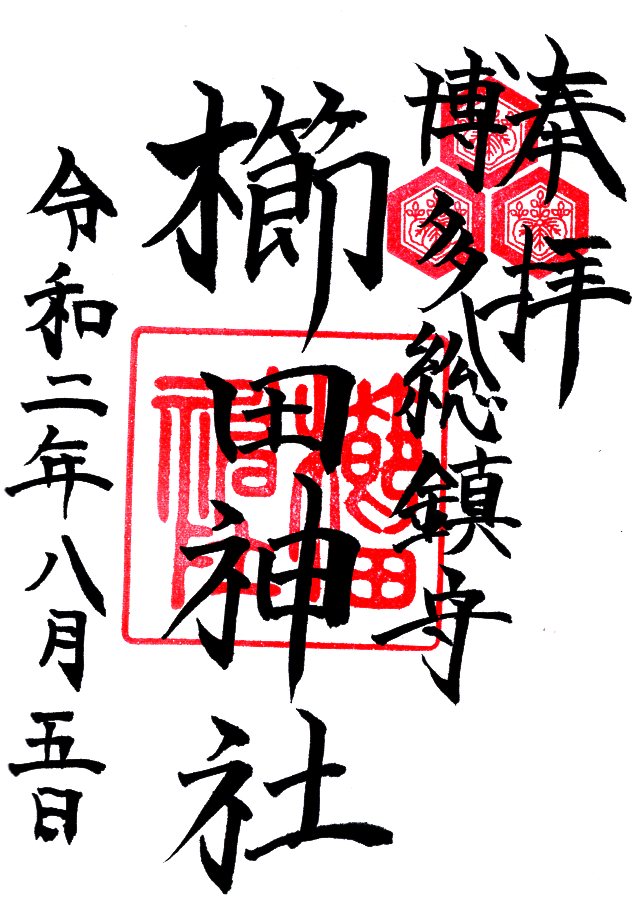 奉拝
博多総鎮守
櫛田神社
令和二年八月五日